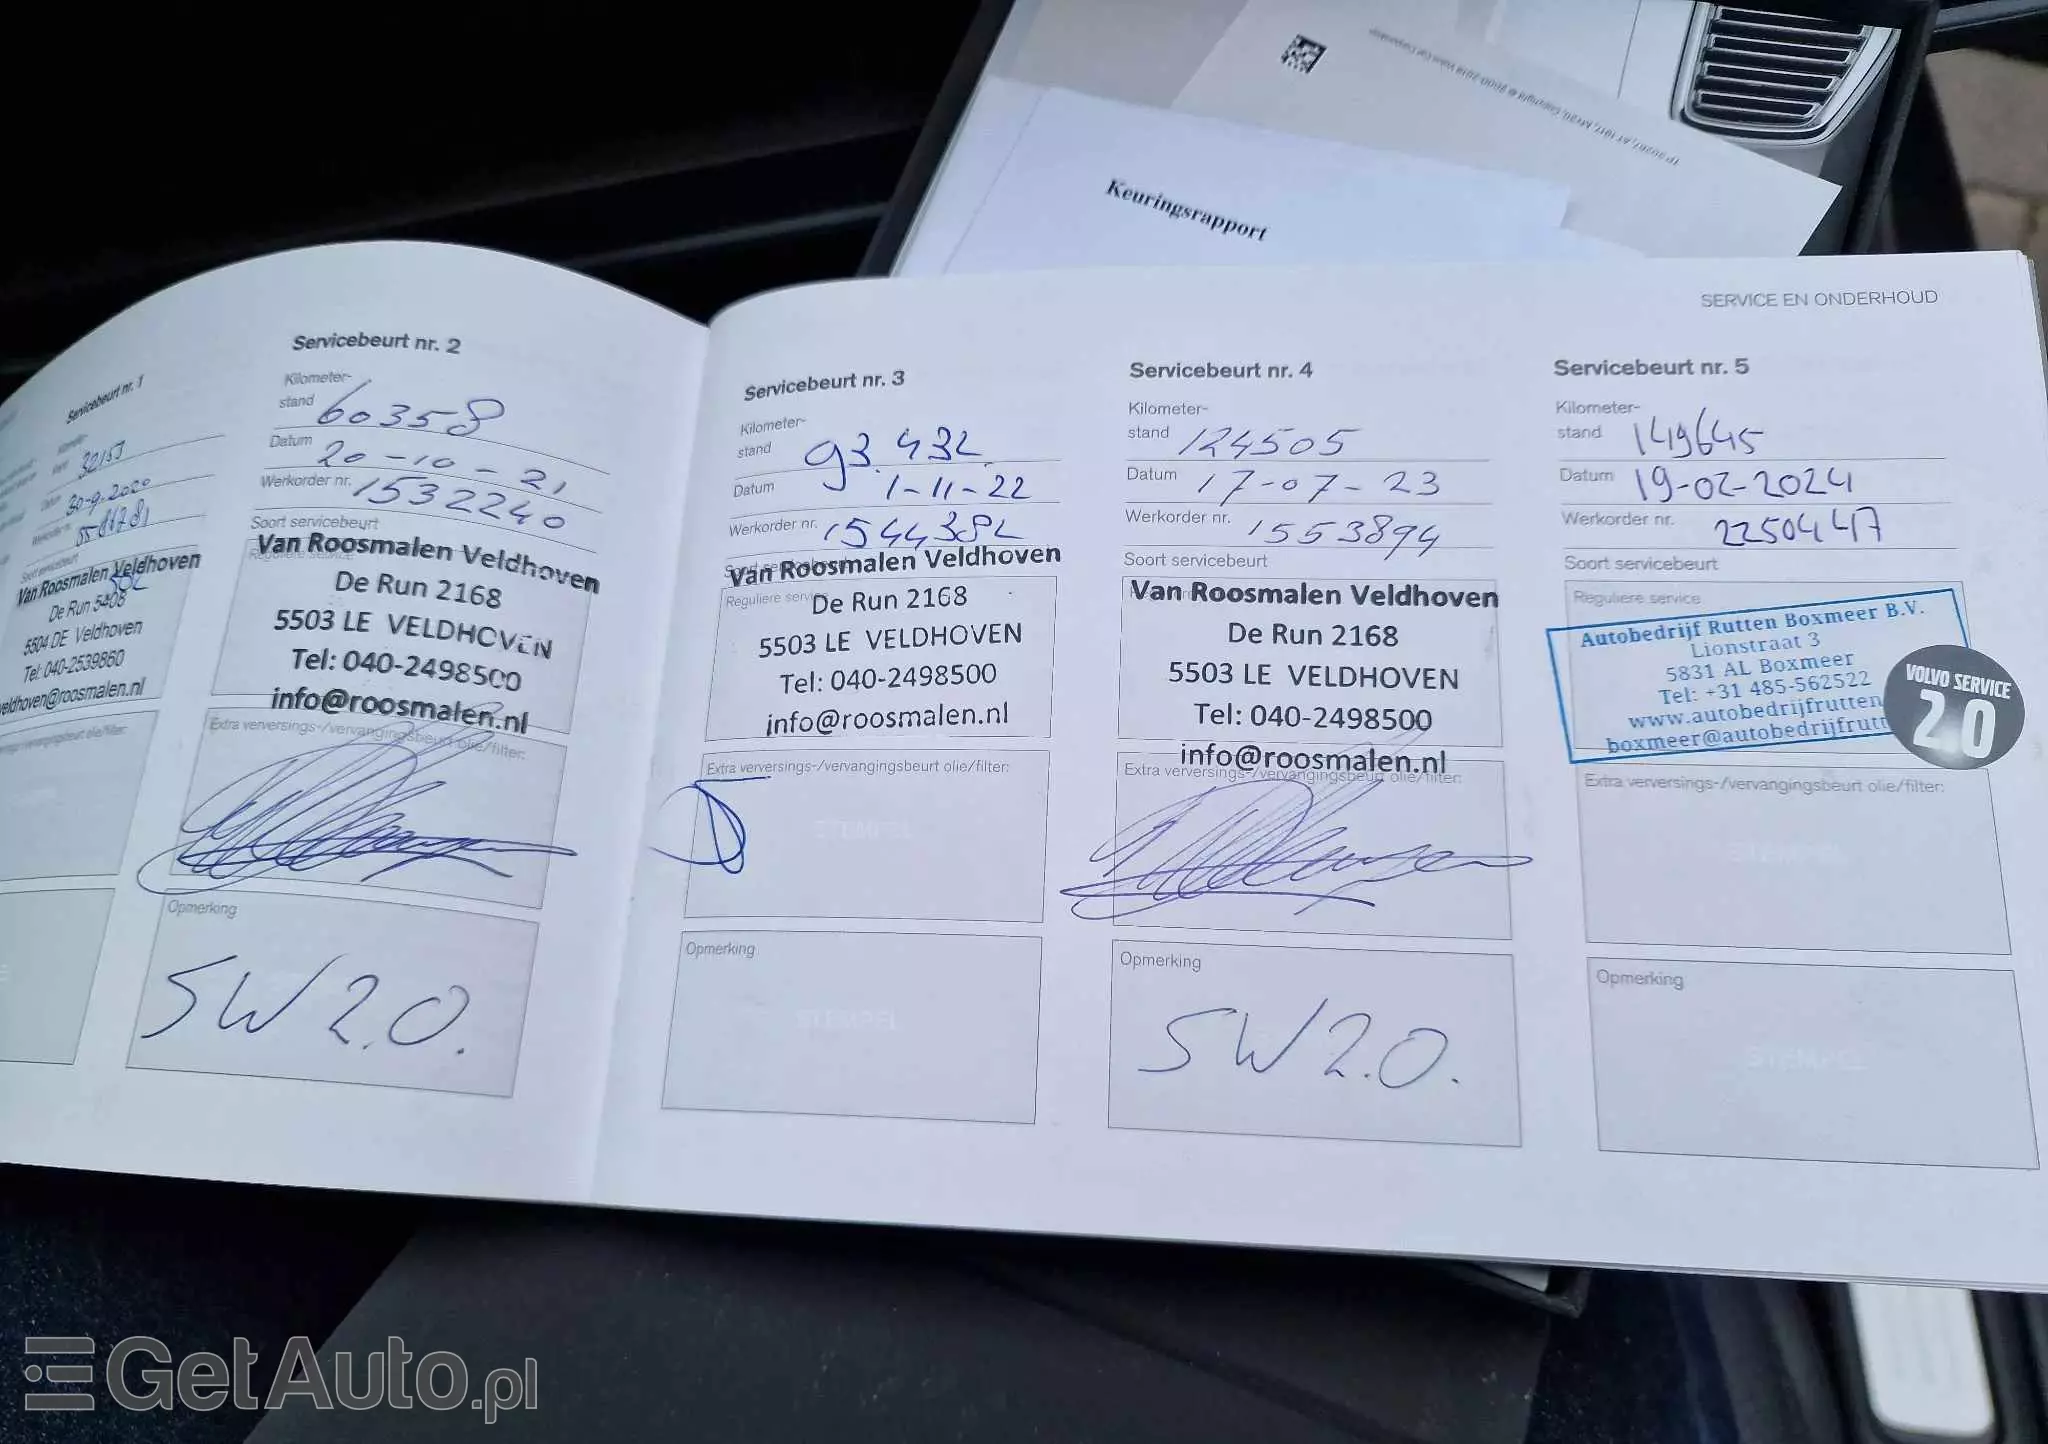 TP 30267, AT 1817, MY20, Copyright © 2000-2019 Volvo Car Corporation
Keuringsrapport
SERVICE EN ONDERHOUD
Servicebeurt nr. 1
30-9-2020
Werkorder nr.
Soort servicebeurt
Van Roosmalen Veldhoven
De Run 5408
5504 DE Veldhoven
Tel: 040-2539860
veldhoven@roosmalen.nl
Servicebeurt nr. 2
Kilometer-
stand 60358
Datum 20-10-21
Werkorder nr. 1532240
Soort servicebeurt
Reguliere service
Van Roosmalen Veldhoven
De Run 2168
5503 LE VELDHOVEN
Tel: 040-2498500
info@roosmalen.nl
Extra verversings-/vervangingsbeurt olie/filter:
Opmerking
SW 2.0.
Servicebeurt nr. 3
Kilometer-
stand 93.432
Datum 1-11-22
Werkorder nr. 1544382
Soort servicebeurt
Van Roosmalen Veldhoven
Reguliere service
De Run 2168
5503 LE VELDHOVEN
Tel: 040-2498500
info@roosmalen.nl
Extra verversings-/vervangingsbeurt olie/filter:
STEMPEL
Opmerking
STEMPEL
Servicebeurt nr. 4
Kilometer-
stand 124505
Datum 17-07-23
Werkorder nr. 1553894
Soort servicebeurt
Van Roosmalen Veldhoven
De Run 2168
5503 LE VELDHOVEN
Tel: 040-2498500
info@roosmalen.nl
Extra verversings-/vervangingsbeurt olie/filter:
Opmerking
SW 2.0.
Servicebeurt nr. 5
Kilometer-
stand 149645
Datum 19-02-2024
Werkorder nr. 22504417
Soort servicebeurt
Reguliere service
Autobedrijf Rutten Boxmeer B.V.
Lionstraat 3
5831 AL Boxmeer
Tel: +31 485-562522
www.autobedrijfrutten
boxmeer@autobedrijfrutt
VOLVO SERVICE
2.0
Extra verversings-/vervangingsbeurt olie/filter:
STEMPEL
Opmerking
STEMPEL
GetAuto.pl